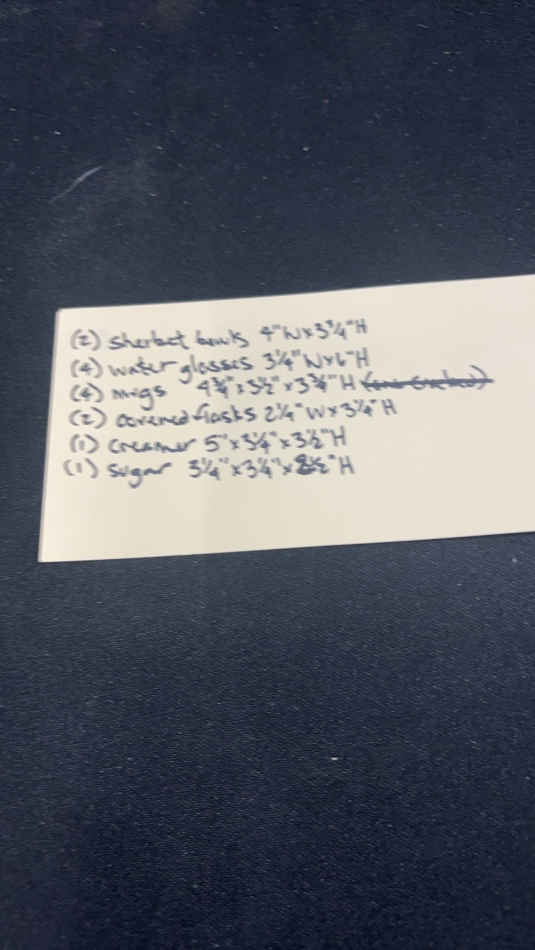 (2) Sherbet bowls 4"W x 3¾"H
(4) water glasses 3¼"W x 6"H
(4) mugs 4¾" x 3½" x 3¾"H
(2) covered flasks 2¼"W x 3¼"H
(1) Creamer 5" x 3¼" x 3½"H
(1) Sugar 3¼" x 3¼" x "H